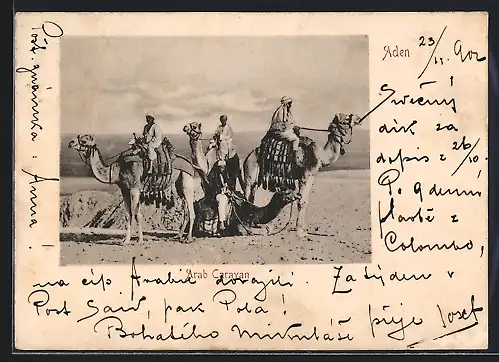 Aden 23/11. 902
Srdečný
dík za
dopis z 26/10
Po 9 denní
plavbě z
Colombo,
na cíp Arabie dorazili. Za týden v
Post Said, pak Pola!
Bohatého Mikuláše přeje Josef
Arab Caravan
Pošt. známka : Anna!